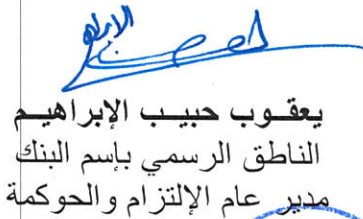 يعقوب حبيب الإبراهيم
الناطق الرسمي بإسم البنك
مدير عام الإلتزام والحوكمة